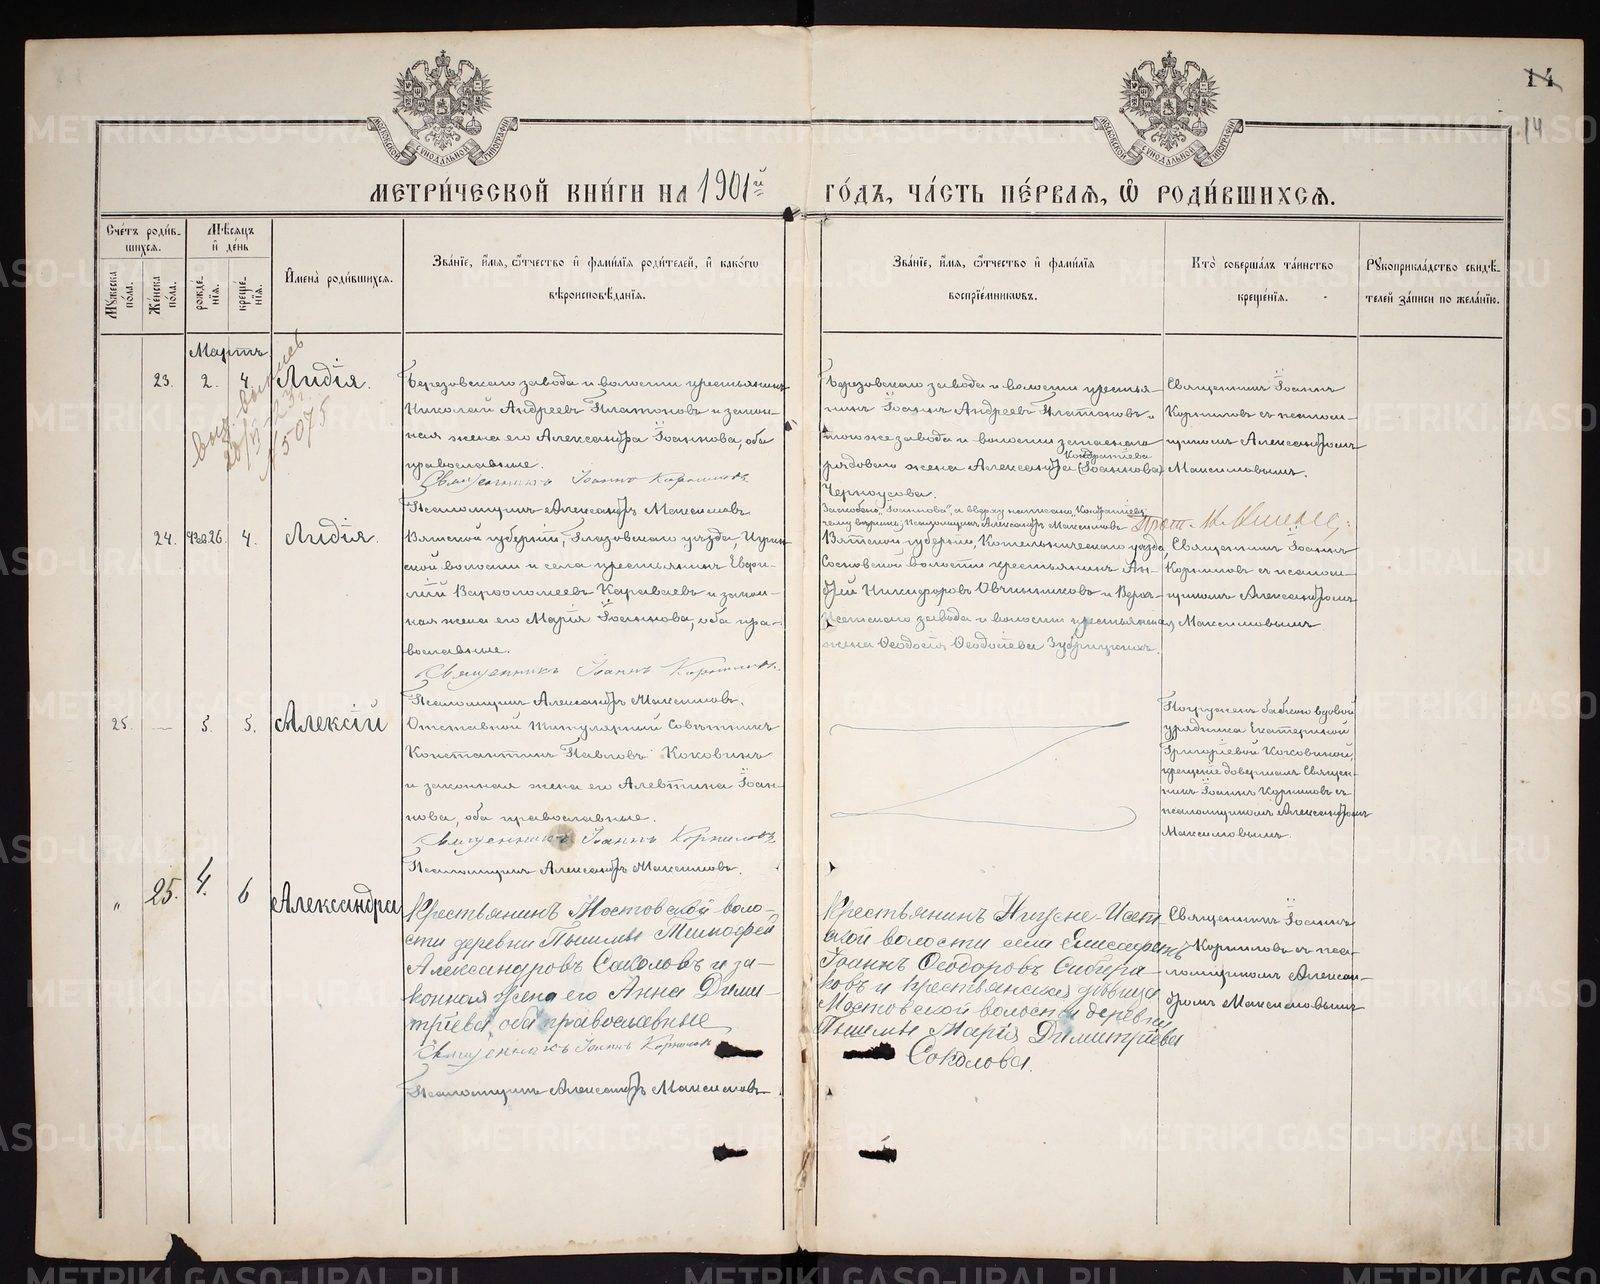 14
14
МЕТРИ́ЧЕСКОЙ КНИ́ГИ НА 1901й ГО́ДЪ, ЧА́СТЬ ПЕ́РВАЯ, Ѡ҆ РОДИ́ВШИХСЯ.
Сче́тъ роди́в-
шихся.
Мꙋ́жеска по́ла.
Же́нска по́ла.
Мѣ́сяцъ
и҆ де́нь
рожде́-
нїя.
креще́-
нїя.
И҆мена̀ роди́вшихся.
Зва́нїе, и҆́мя, ѻ҆́тчество и҆ фами́лїя роди́телей, и҆ како́гѡ
вѣроисповѣ́данїя.
Зва́нїе, и҆́мя, ѻ҆́тчество и҆ фами́лїя
воспрїе́мникѡвъ.
Кто̀ соверша́лъ та́инство
креще́нїя.
Рꙋкоприкла́дство свидѣ́-
телей за́писи по жела́нїю.
Мартъ
23. 2. 4. Лидія.
№ 5075
Березовскаго завода и волости крестьянинъ
Николай Андреевъ Платоновъ и закон-
ная жена его Александра Іоаннова, оба
православные.
Священникъ Іоаннъ Корниловъ
Псаломщикъ Александръ Максимовъ.
Березовскаго завода и волости крестья-
нинъ Іоаннъ Андреевъ Платоновъ и
того же завода и волости запаснаго
Кондратіева
рядоваго жена Александра (Іоаннова)
Черноусова.
Священникъ Іоаннъ
Корниловъ съ псалом-
щикомъ Александромъ
Максимовымъ.
24. 26. 4. Лидія.
Вятской губерніи, Глазовскаго уѣзда,
ской волости и села крестьянинъ
Варфоломеевъ Караваевъ и закон-
ная жена его Марія Іоаннова, оба пра-
вославные.
Священникъ Іоаннъ Корниловъ.
Псаломщикъ Александръ Максимовъ.
Псаломщикъ Александръ Максимовъ
Вятской губерніи, Котельническаго уѣзда,
Сосновской волости крестьянинъ Ан-
дрей Никифоровъ Овчинниковъ и Верхъ-
Исетскаго завода и волости крестьянская
жена Ѳеодосія Ѳеодосіева
Священникъ Іоаннъ
Корниловъ съ псалом-
щикомъ Александромъ
Максимовымъ
25. — 5. 5. Алексій
Отставной Титулярный Совѣтникъ
Константинъ Павловъ Коковинъ
и законная жена его Алевтина Іоан-
нова, оба православные.
Священникъ Іоаннъ Корниловъ
Псаломщикъ Александръ Максимовъ.
Погруженъ бабкою вдовой
урядника Екатериной
Григоріевой Коковиной,
крещеніе довершалъ Священ-
никъ Іоаннъ Корниловъ съ
псаломщикомъ Александромъ
Максимовымъ.
" 25. 4. 6 Александра
Крестьянинъ Мостовской воло-
сти деревни Пышмы Тимофей
Александровъ Соколовъ и за-
конная жена его Анна Дими-
тріева, оба православные
Священникъ Іоаннъ Корниловъ
Псаломщикъ Александръ Максимовъ.
Крестьянинъ Нижне-Исет-
ской волости села
Іоаннъ Ѳеодоровъ Сибиря-
ковъ и крестьянская дѣвица
Мостовской волости деревни
Пышмы Марія Димитріева
Соколова.
Священникъ Іоаннъ
Корниловъ съ пса-
ломщикомъ Алексан-
дромъ Максимовымъ
METRIKI.GASO-URAL.RU